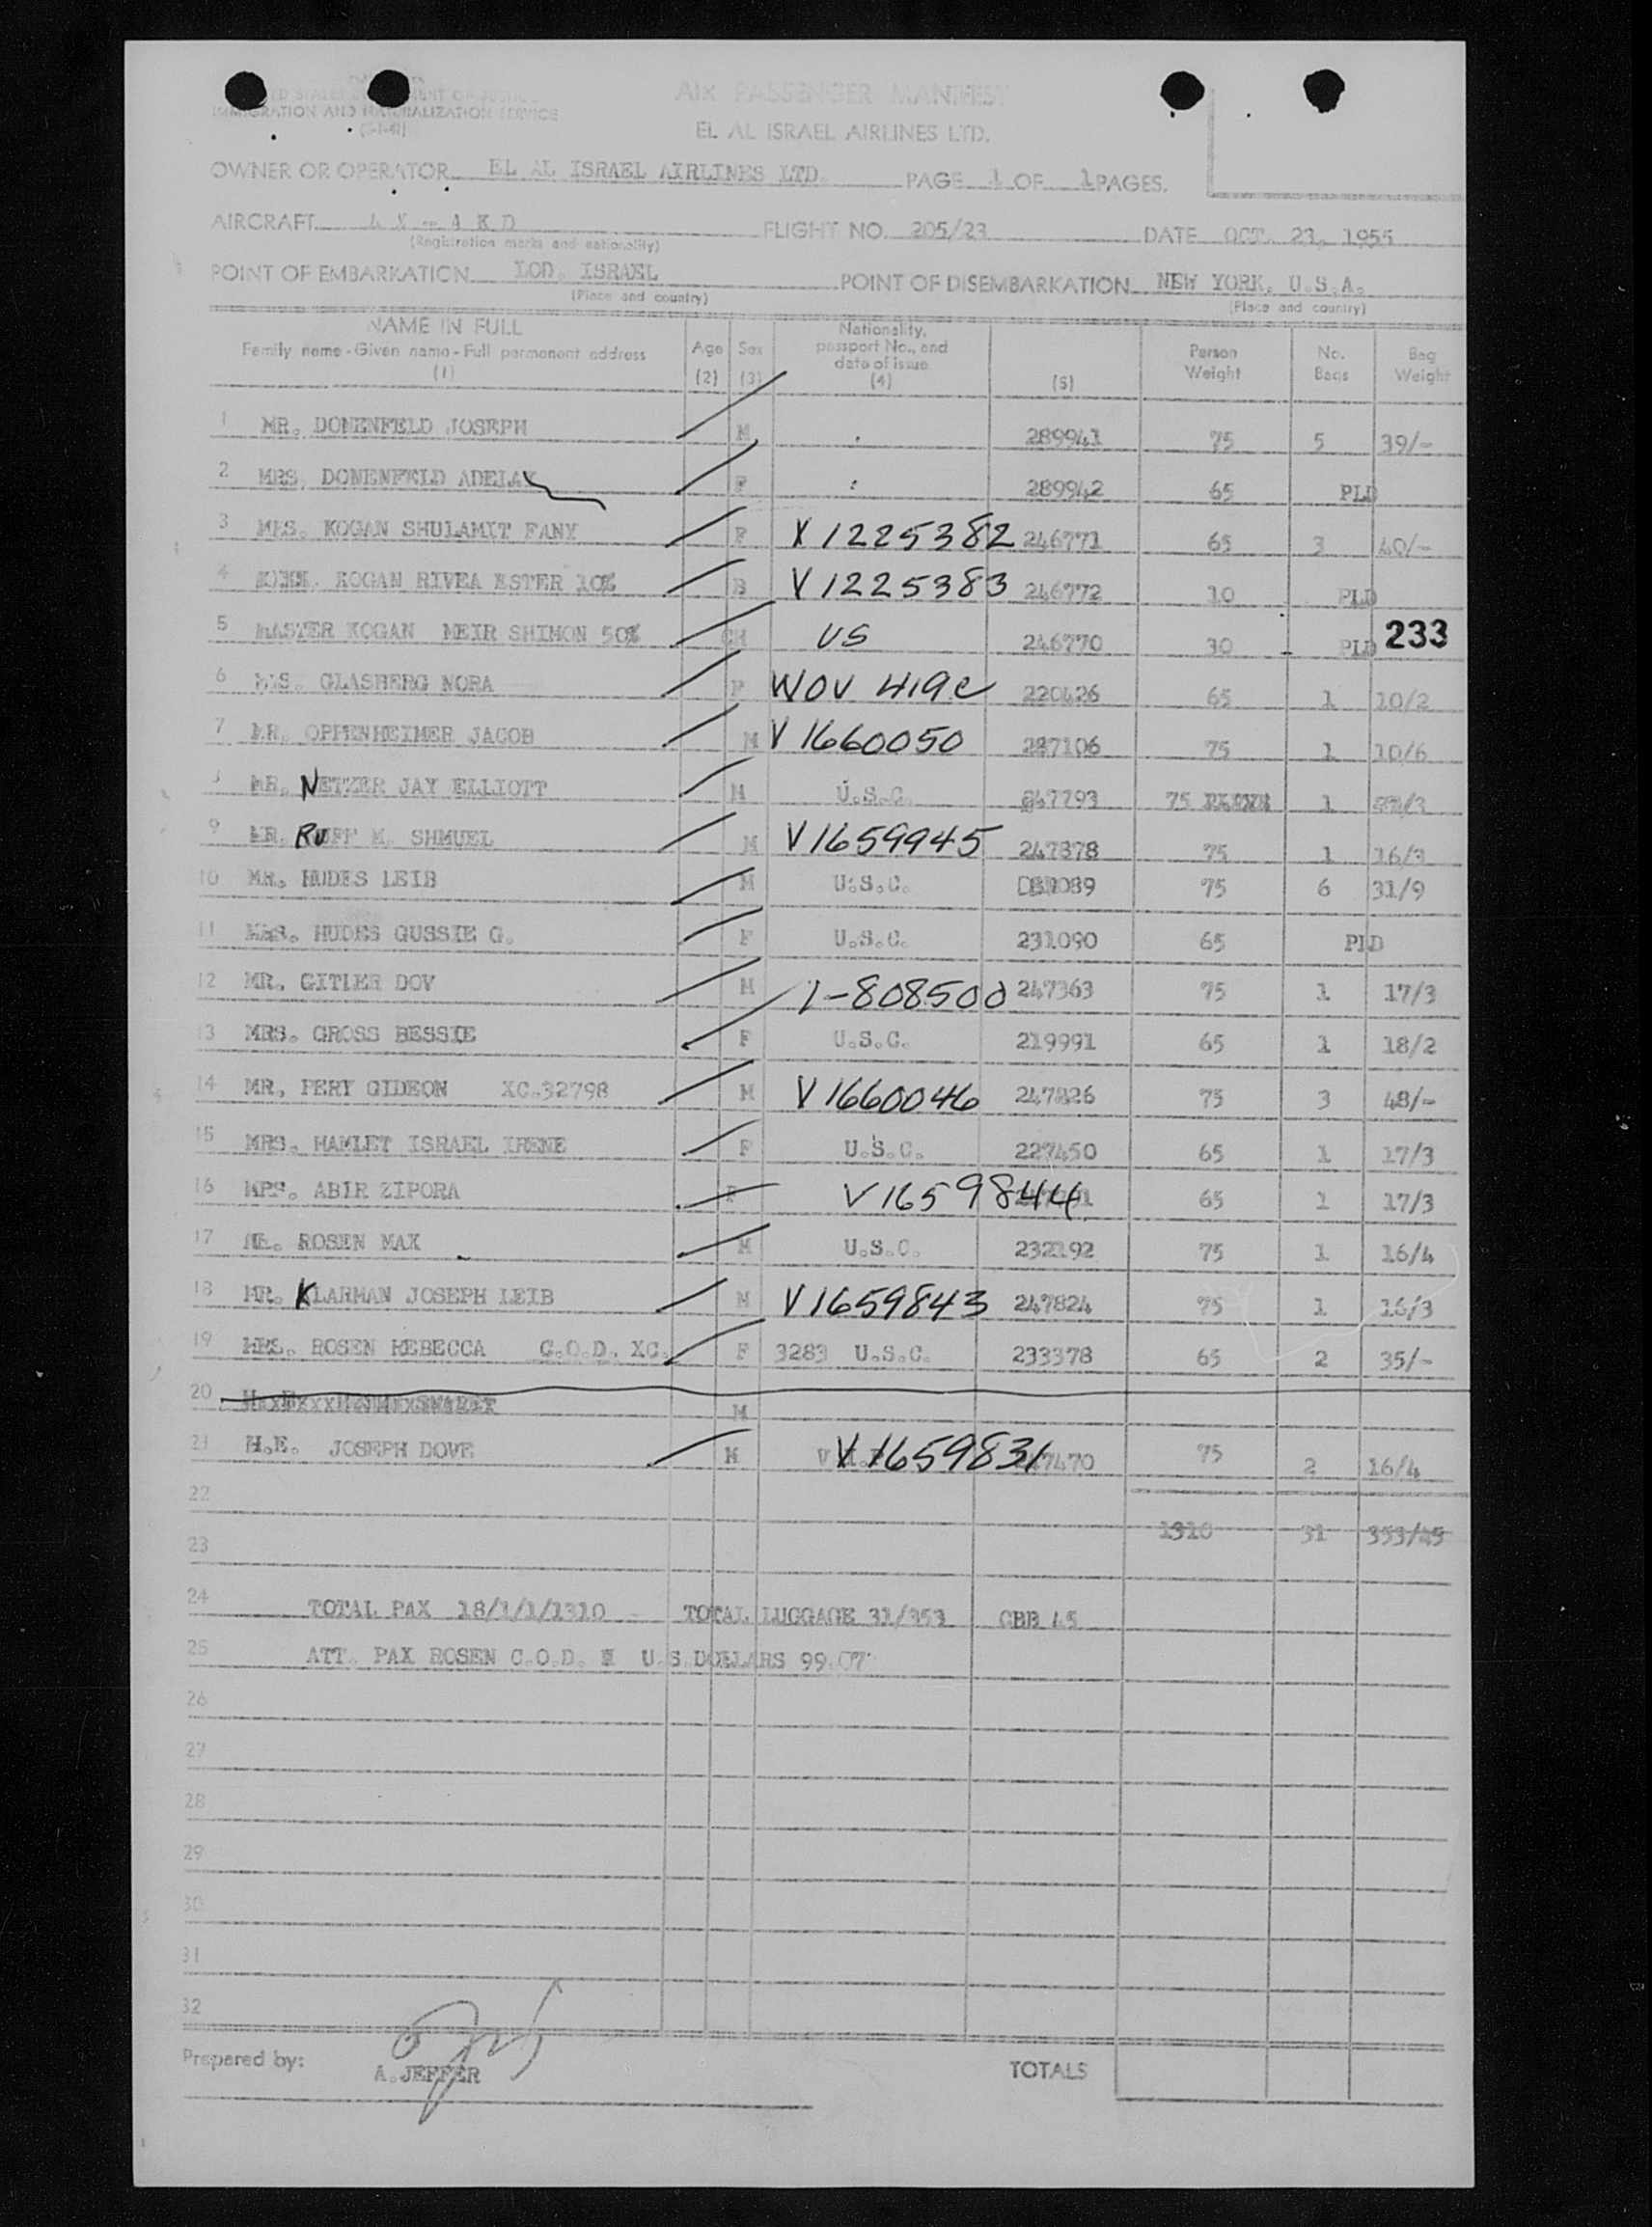 UNITED STATES DEPARTMENT OF JUSTICE
IMMIGRATION AND NATURALIZATION SERVICE
AIR PASSENGER MANIFEST
EL AL ISRAEL AIRLINES LTD.
OWNER OR OPERATOR EL AL ISRAEL AIRLINES LTD. PAGE 1 OF 1 PAGES.
AIRCRAFT 4 X - A K D FLIGHT NO. 205/23 DATE OCT. 23, 1955
(Registration marks and nationality)
POINT OF EMBARKATION LOD, ISRAEL POINT OF DISEMBARKATION NEW YORK, U.S.A.
(Place and country) (Place and country)
NAME IN FULL
Family name - Given name - Full permanent address
(1)
Age
(2)
Sex
(3)
Nationality, passport No., and date of issue
(4)
(5)
Person Weight
No. Bags
Bag Weight
1 MR. DONENFELD JOSEPH M 289941 75 5 39/-
2 MRS. DONENFELD ADELA F 289942 65 PLD
3 MRS. KOGAN SHULAMIT FANY F V 1225382 246771 65 3 40/-
4 KOGAN RIVKA ESTER 10% B V 1225383 246772 10 PLD
5 MASTER KOGAN MEIR SHIMON 50% CH US 246770 30 PLD 233
6 GLASBERG NORA F WOV 419c 220426 65 1 10/2
7 MR. OPPENHEIMER JACOB M V 1660050 247106 75 1 10/6
MR. NETZER JAY ELLIOTT M U.S.C. 247793 75 1
9 MR. RUFF M. SHMUEL M V1659945 247878 75 1 16/3
10 MR. HUDES LEIB M U.S.C. 75 6 31/9
11 MRS. HUDES GUSSIE G. F U.S.C. 231090 65 PLD
12 MR. GITLER DOV M 1-808500 247363 75 1 17/3
13 MRS. GROSS BESSIE F U.S.C. 219991 65 1 18/2
14 MR. PERY GIDEON XC.32798 M V 1660046 247826 75 3 48/-
15 MRS. HAMLET ISRAEL IRENE F U.S.C. 227450 65 1 17/3
16 MRS. ABIR ZIPORA F V 1659844 65 1 17/3
17 MR. ROSEN MAX M U.S.C. 232192 75 1 16/4
18 MR. KLARMAN JOSEPH LEIB M V1659843 247824 75 1 16/3
19 MRS. ROSEN REBECCA C.O.D. XC. F 3283 U.S.C. 233378 65 2 35/-
20 M
21 H.E. JOSEPH DOVE M V1659831 75 2 16/4
22
23 1310 31 353/45
24 TOTAL PAX 18/1/1/1310 TOTAL LUGGAGE 31/353 CBB 45
25 ATT. PAX ROSEN C.O.D. U.S.DOLLARS 99.07
26
27
28
29
30
31
32
Prepared by: A. JEFFER TOTALS